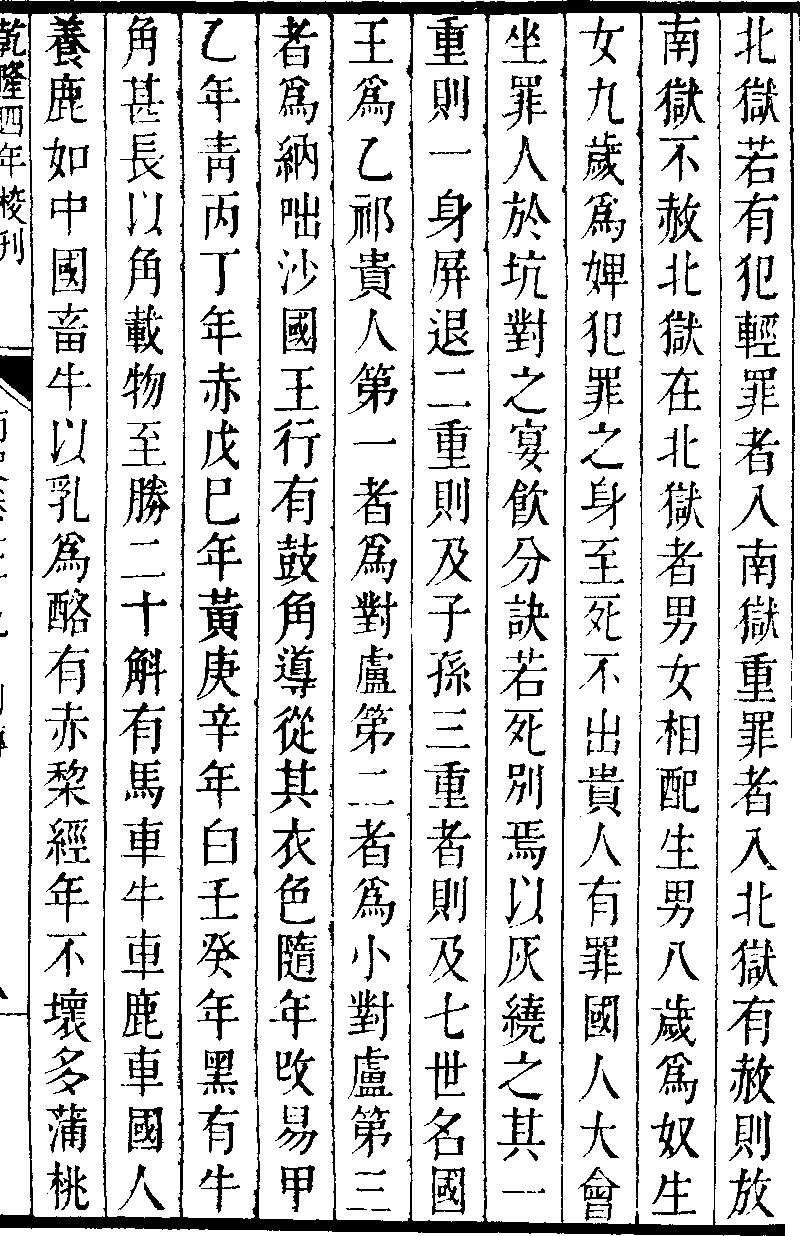 北獄若有犯輕罪者入南獄重罪者入北獄有赦則放
南獄不赦北獄在北獄者男女相配生男八歲爲奴生
女九歲爲婢犯罪之身至死不出貴人有罪國人大會
坐罪人於坑對之宴飲分訣若死別焉以灰繞之其一
重則一身屏退二重則及子孫三重者則及七世名國
王爲乙祁貴人第一者爲對盧第二者爲小對盧第三
者爲納咄沙國王行有鼓角導從其衣色隨年改易甲
乙年青丙丁年赤戊巳年黃庚辛年白壬癸年黑有牛
角甚長以角載物至勝二十斛有馬車牛車鹿車國人
養鹿如中國畜牛以乳爲酪有赤棃經年不壞多蒲桃
乾隆四年校刊